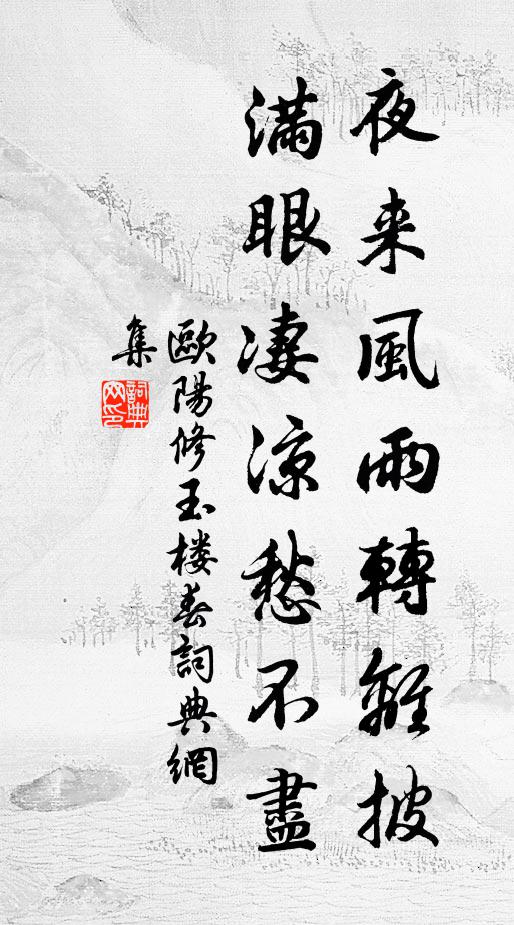 夜来風雨轉離披
滿眼凄涼愁不盡
歐陽修玉楼春詞典網
集
詞典
网印